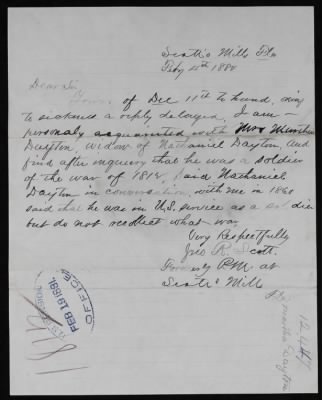 Scott's Mills Fla
Feby 4th 1880
Dear Sir
Yours of Dec 11th to hand, owing
to sickness a reply delayed, I am
personaly acquainted with Mrs
Dayton, widow of Nathaniel Dayton, and
find after enquiry that he was a soldier
of the war of 1812, Said Nathaniel
Dayton in conversation, with me in 1860
said that he was in U.S. service as a soldier
but do not recollect what war
Very Respectfully
Jno R. Scott.
Formerly P.M. at
Scotts Mill
Fla
OFFICE
FEB 19 1881
Dayton